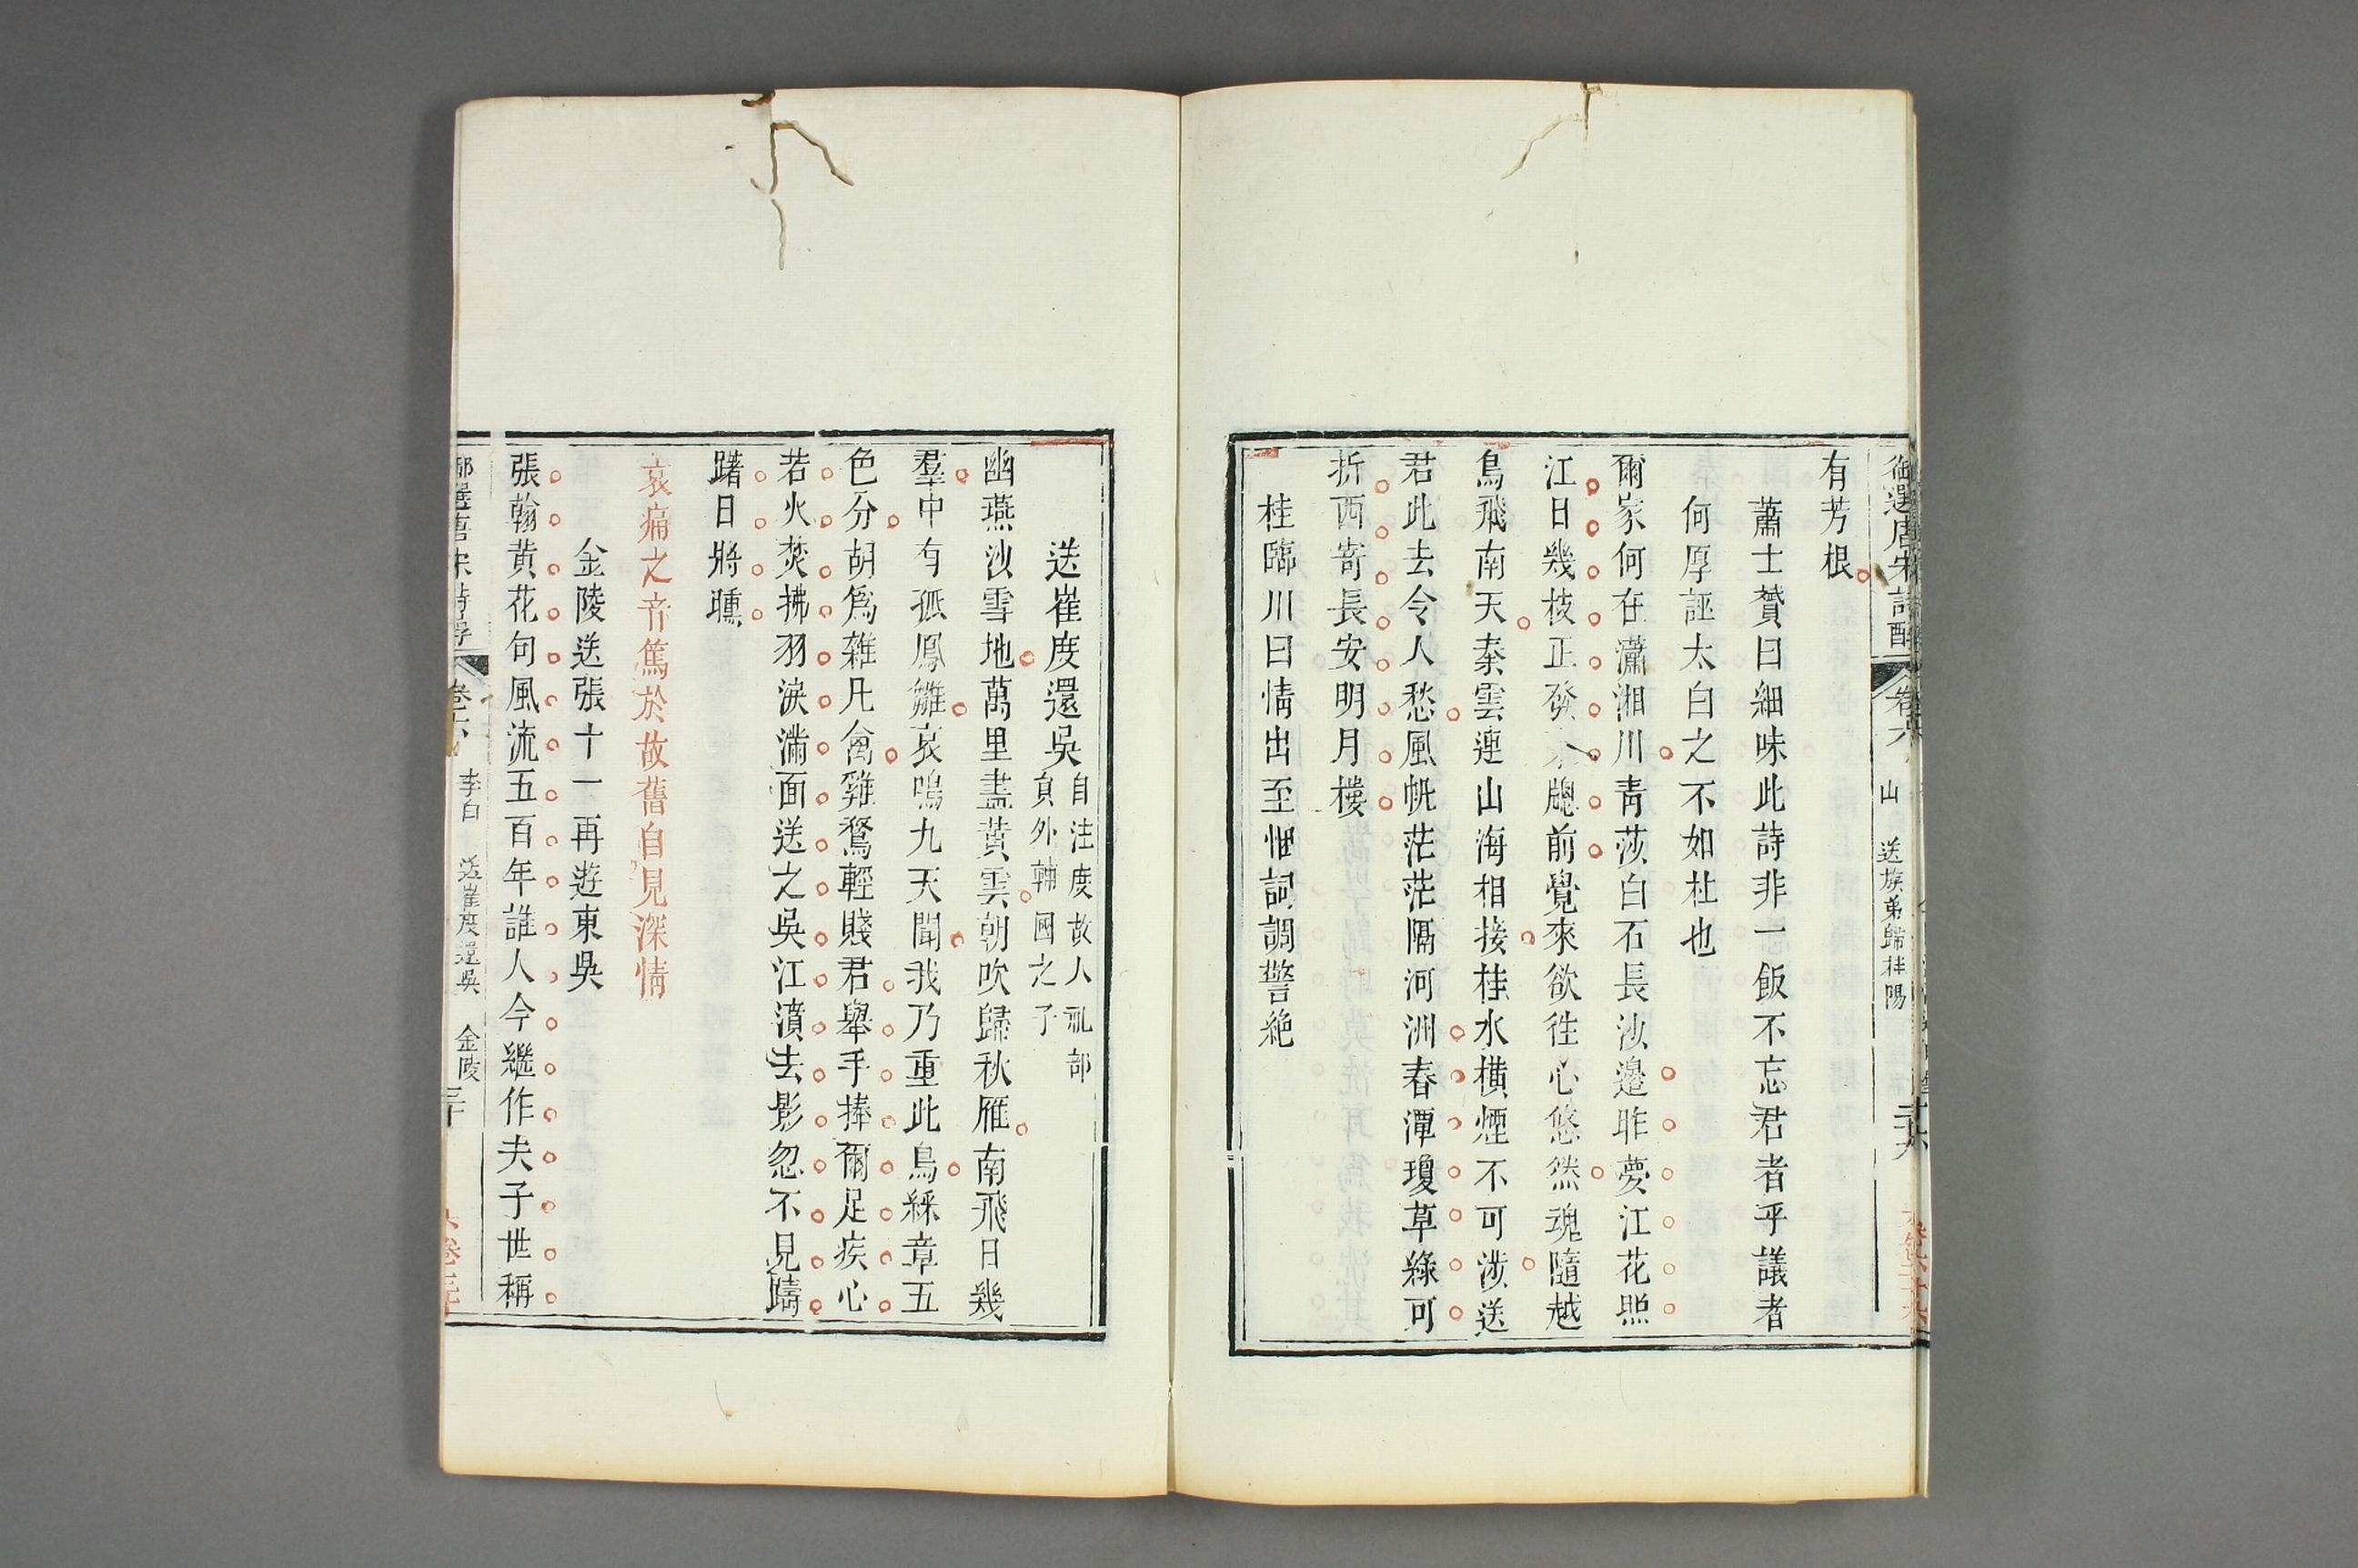 御選唐宋詩醇
卷六
山
送族弟歸桂陽
有芳根
蕭士贇曰細味此詩非一飯不忘君者乎議者
何厚誣太白之不如杜也
爾家何在瀟湘川青莎白石長沙邊昨夢江花照
江日幾枝正發東牕前覺來欲徃心悠然魂隨越
鳥飛南天秦雲連山海相接桂水橫煙不可涉送
君此去令人愁風帆茫茫隔河洲春潭瓊草綠可
折西寄長安明月樓
桂臨川曰情出至悃詞調警絶
送崔度還吳
自注度故人礼部
貟外輔國之子
幽燕沙雪地萬里盡黃雲朝吹歸秋雁南飛日幾
羣中有孤鳳雛哀鳴九天聞我乃重此鳥綵章五
色分胡爲雜凡禽雞鶩輕賤君舉手捧爾足疾心
若火焚拂羽淚滿面送之吳江濆去影忽不見躊
躇日將曛
哀痛之音篤於故舊自見深情
金陵送張十一再遊東吳
張翰黃花句風流五百年誰人今繼作夫子世稱
李白
送崔度還吳
金陵